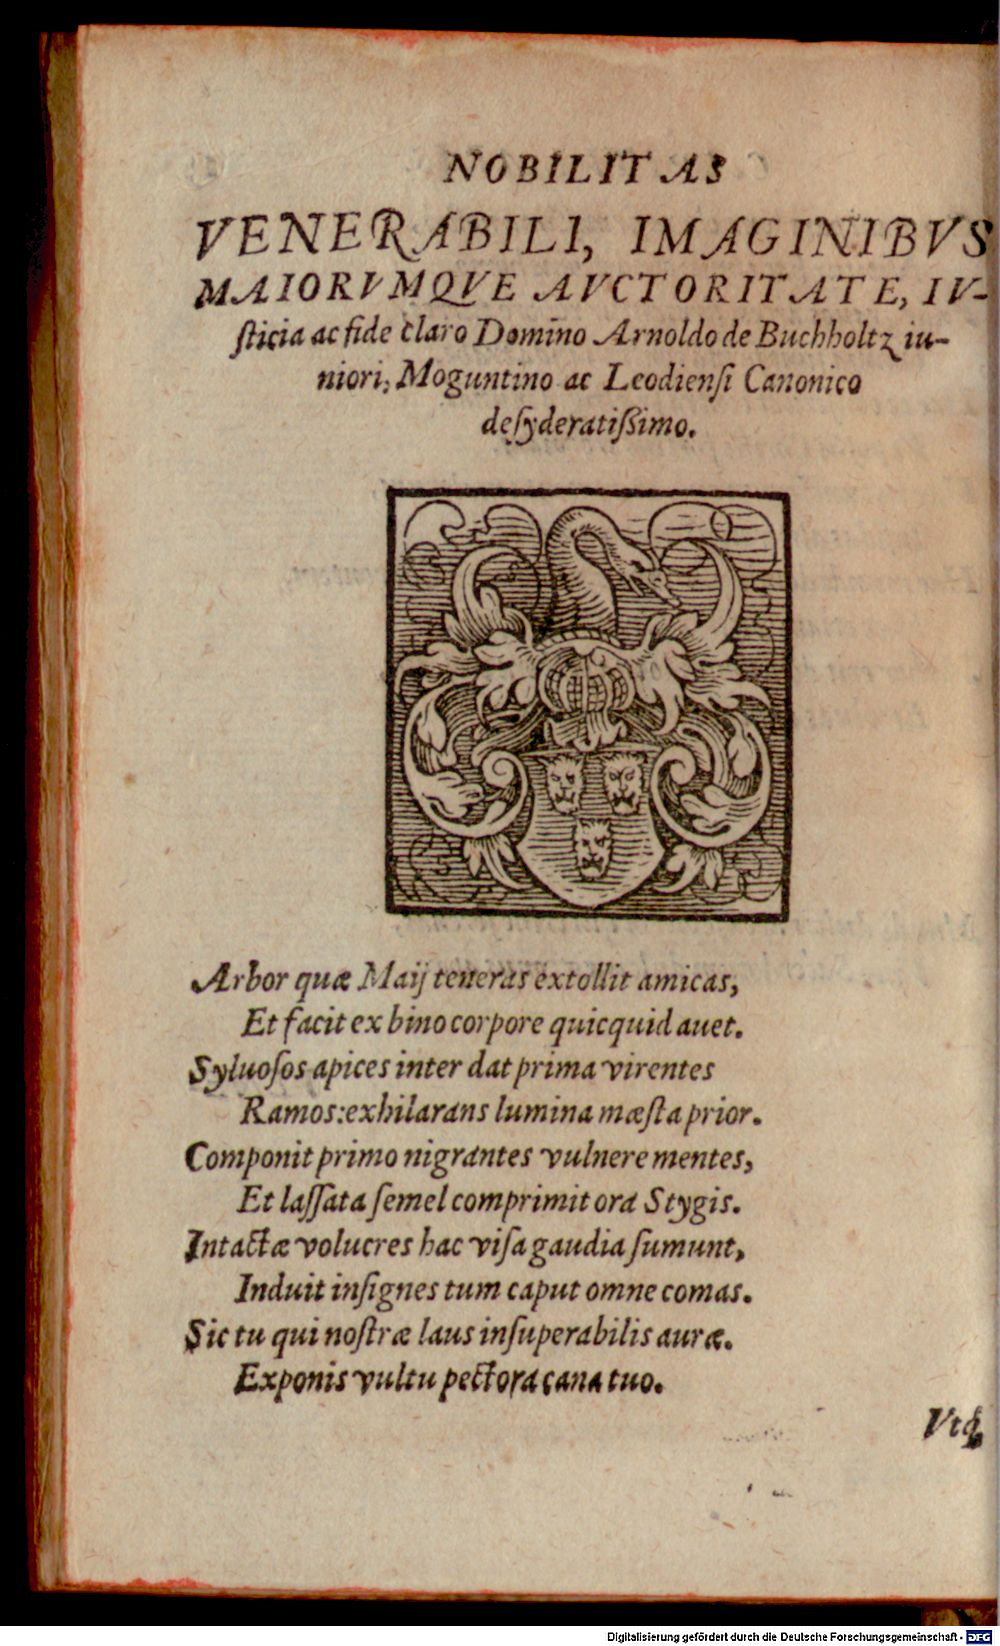 NOBILITAS
VENERABILI, IMAGINIBVS
MAIORVMQVE AVCTORITATE, IV-
ſticia ac fide claro Domino Arnoldo de Buchholtz iu-
niori, Moguntino ac Leodienſi Canonico
deſyderatiſſimo.
Arbor quæ Maij teneras extollit amicas,
Et facit ex bino corpore quicquid auet.
Syluoſos apices inter dat prima virentes
Ramos: exhilarans lumina mæſta prior.
Componit primo nigrantes vulnere mentes,
Et laſſata ſemel comprimit ora Stygis.
Intactæ volucres hac viſa gaudia ſumunt,
Induit inſignes tum caput omne comas.
Sic tu qui noſtræ laus inſuperabilis auræ.
Exponis vultu pectora cana tuo.
Vtq́;
Digitalisierung gefördert durch die Deutsche Forschungsgemeinschaft - DFG